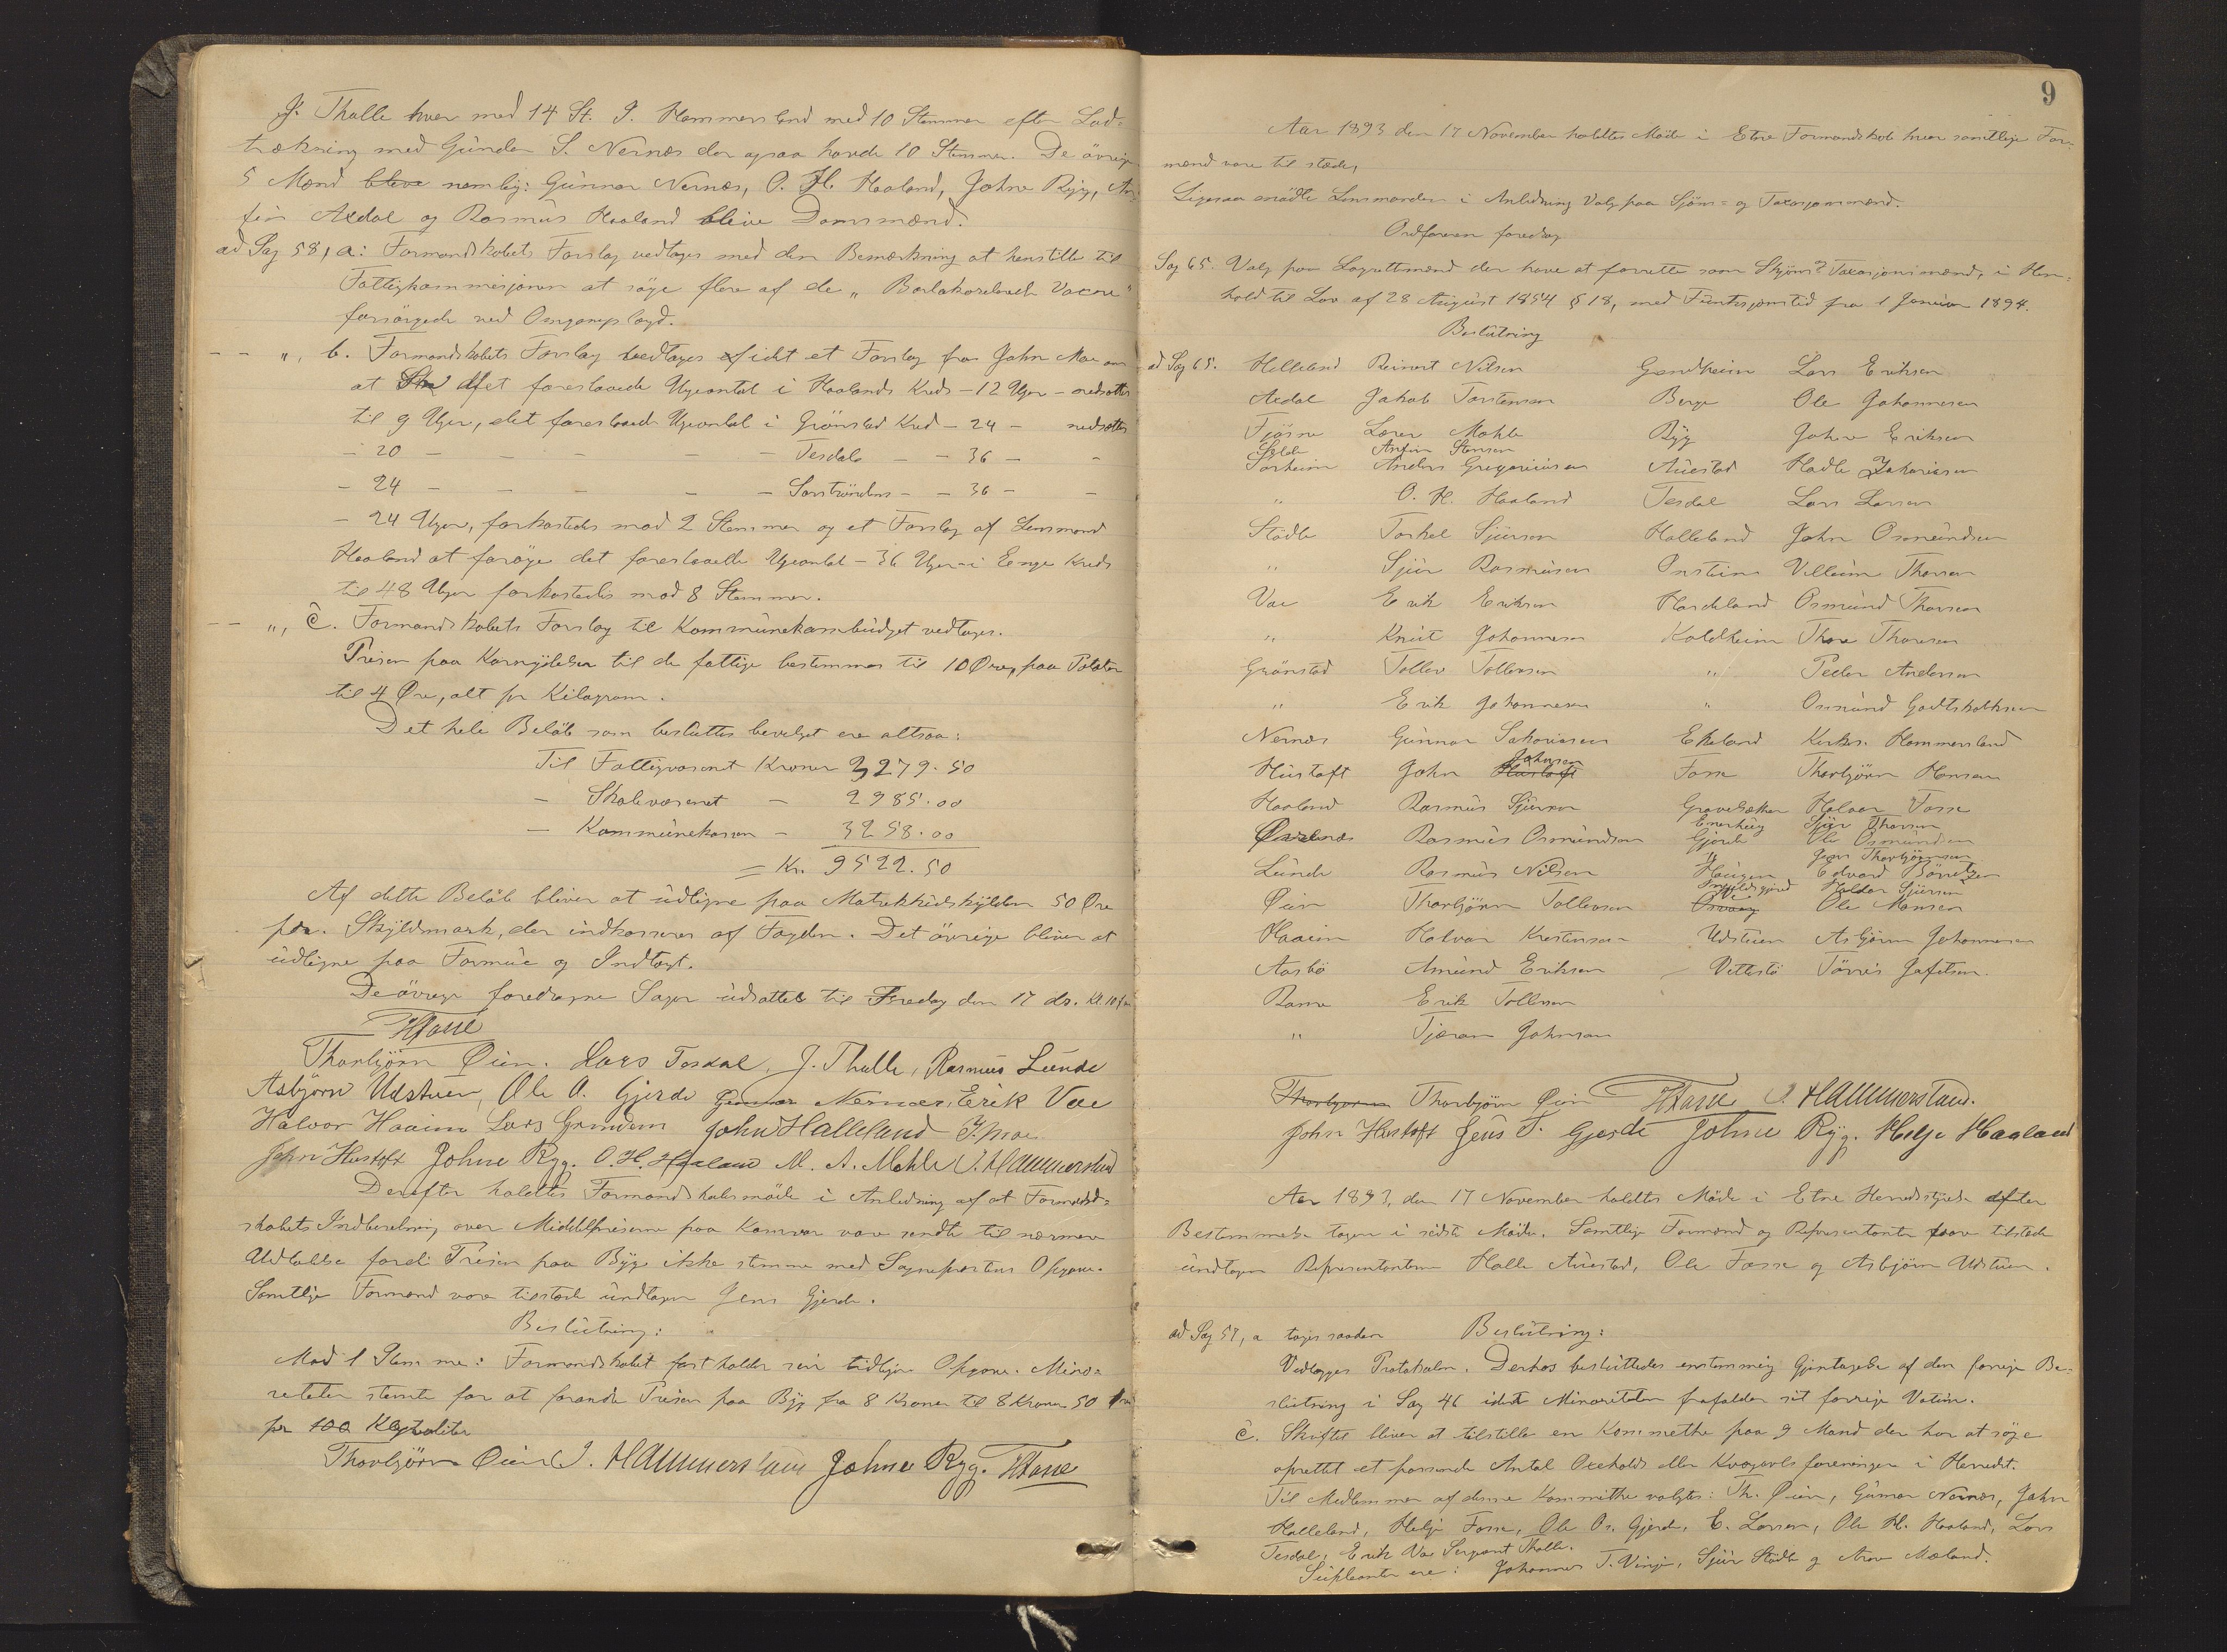 J. Thalle hver med 14 St. I. Hammersland med 10 Stemmer efter Lod-
trækning med Gunder S. Nernæs der ogsaa havde 10 Stemmer. De övrige
5 Mænd bleve nemlig: Gunnar Nernæs, O. H. Haaland, Johne Ryg, An-
fin Axdal og Rasmus Haaland bleve Domsmænd.
ad Sag 58, a: Formandskabets Forslag vedtages med den Bemærkning at henstille til
Fattigkommisjonen at söge flere af de
forsörgede ved Omgangslægd.
- - ", b. Formandskabets Forslag vedtages idet et Forslag fra John Moe om
at det foreslaaede Ugeantal i Haalands Kreds - 12 Uger - nedsættes
til 9 Uger, det foreslaaede Ugeantal i Grönstad Kreds - 24 - nedsættes
- 20 - - - - - Tesdals - - 36 - -
- 24 - - - - - Sörstrandens - - 36 - -
- 24 Uger, forkastedes mod 2 Stemmer og et Forslag af Lensmand
Haaland at foröge det foreslaaede Ugeantal - 36 Uger - i Enge Kreds
til 48 Uger forkastedes mod 8 Stemmer.
- - ", c. Formandskabets Forslag til Kommunekassebudget vedtages.
Prisen paa Kornydelser til de fattige bestemmes til 10 Øre, paa Poteter
til 4 Øre, alt pr Kilogram.
Det hele Beløb som besluttes bevilget er altsaa:
Til Fattigvæsenet Kroner 3279.50
- Skolevæsenet - 2985.00
- Kommunekassen - 3258.00
= Kr. 9522.50
Af dette Beløb bliver at udligne paa Matrikkelskylden 50 Øre
pr. Skyldmark, der indkasseres af Fogden. Det övrige bliver at
udligne paa Formue og Indtægt.
De övrige foredragne Sager udsattes til Fredag den 17 ds. Kl. 10 fm
HFosse
Thorbjörn Øien. Lars Tesdal, J. Thalle, Rasmus Lunde
Asbjörn Udstuen, Ole O. Gjerde Gunnar Nernæs, Erik Vae
Halvor Haaim Lars Grindem John Halleland J. Moe
John Hustoft Johne Ryg. O. H. Haaland M. A. Mehle I. Hammersland
Derefter holdtes Formandskabsmöde i Anledning af at Formand-
skabets Indberetning over Middelpriserne paa Kornvar var sendt til nærmere
Udtalelse fordi Prisen paa Byg ikke stemme med Sognepræstens Opgave.
Samtlige Formænd vare tilstede undtagen Jens Gjerde.
Beslutning:
Mod 1 Stemme: Formandskabet fastholder sin tidligere Opgave. Mino-
riteten stemte for at forandre Prisen paa Byg fra 8 Kroner til 8 Kroner 50 Øre
per 100 Liter
Thorbjörn Øien I. Hammersland Johne Ryg. HFosse
9
Aar 1893 den 17 November holdtes Möde i Etne Formandskab hvor samtlige For-
mænd vare til stede,
Ligesaa mödte Lensmanden i Anledning Valg paa Skjöns- og Taxasjonsmænd.
Ordføreren foredrog
Sag 65. Valg paa Lagrettsmænd der have at forrette som Skjöns & Taxasjonsmænd, i Hen-
hold til Lov af 28 August 1854 § 18, med Funksjonstid fra 1 Januar 1894.
Beslutning
ad Sag 65. Helleland Reinert Nilsen Grandheim Lars Eriksen
Axdal Jakob Torstensen Berge Ole Johannesen
Fjösne Lærer Mehle Ryg Johne Eriksen
Anfin Stensen
Sörheim Anders Gregoriussen Auestad Halle Zakariasen
" O. H. Haaland Tesdal Lars Larsen
Stödle Torkel Sjursen Halleland John Osmundsen
" Sjur Rasmusen Villum Thorsen
Vae Erik Eriksen Hardeland Osmund Thorsen
" Knut Johannesen Kaldheim Thore Thoresen
Grönstad Tollev Tollevsen " Peder Andersen
" Erik Johannesen " Osmund Godtskalksen
Nernæs Gunnar Sakariasen Ekeland Kirkes. Hammersland
Johnsen
Hustoft John Hustoft Fosse Thorbjörn Hansen
Haaland Rasmus Sjursen Halvor Fosse
Sjur Thorsen
Rasmus Osmundsen Gjerde Ole Osmundsen
" Jens Thorbjörnsen
Lunde Rasmus Nilsen Haugen Edvard Börretzen
Haldor Sjursen
Øien Thorbjörn Tollevsen Ole Monsen
Haaim Halvor Kristensen Udstuen Asbjörn Johannesen
Aarbö Amund Eriksen Vettestö Törris Jafetsen.
Ramo Erik Tollevsen
" Tjeran Johnsen
Thorbjørn Thorbjörn Øien HFosse I. Hammersland.
John Hustoft Jens T. Gjerde Johne Ryg. Helje Haaland
Aar 1893, den 17 November holdtes Möde i Etne Herredsstyrelse efter
Bestemmelse tagen i sidste Möde. Samtlige Formænd og Repræsentanter vare tilstede
undtagen Repræsentanterne Halle Auestad, Ole Fosse og Asbjörn Udstuen.
ad Sag 57, a tages saadan Beslutning:
Vedlægges Protokollen. Derhos besluttedes enstemmig Gjentagelse af den forrige Be-
slutning i Sag 46 idet Minoriteten frafalder sit forrige Votum.
c. Skriftet bliver at tilstille en Kommitthe paa 9 Mænd der har at söge
oprettet et passende Antal Oxeholds eller Kvægavlsforeninger i Herredet.
Til Medlemmer af denne Kommitthe valgtes: Th. Øien, Gunnar Nernæs, John
Halleland, Helje Fosse, Ole Os. Gjerde, E. Larsen, Ole H. Haaland, Lars
Tesdal, Erik Vae Sergeant Thalle.
Supleanter ere: Johannes T. Vinje, Sjur Stödle og Arne Mæland.